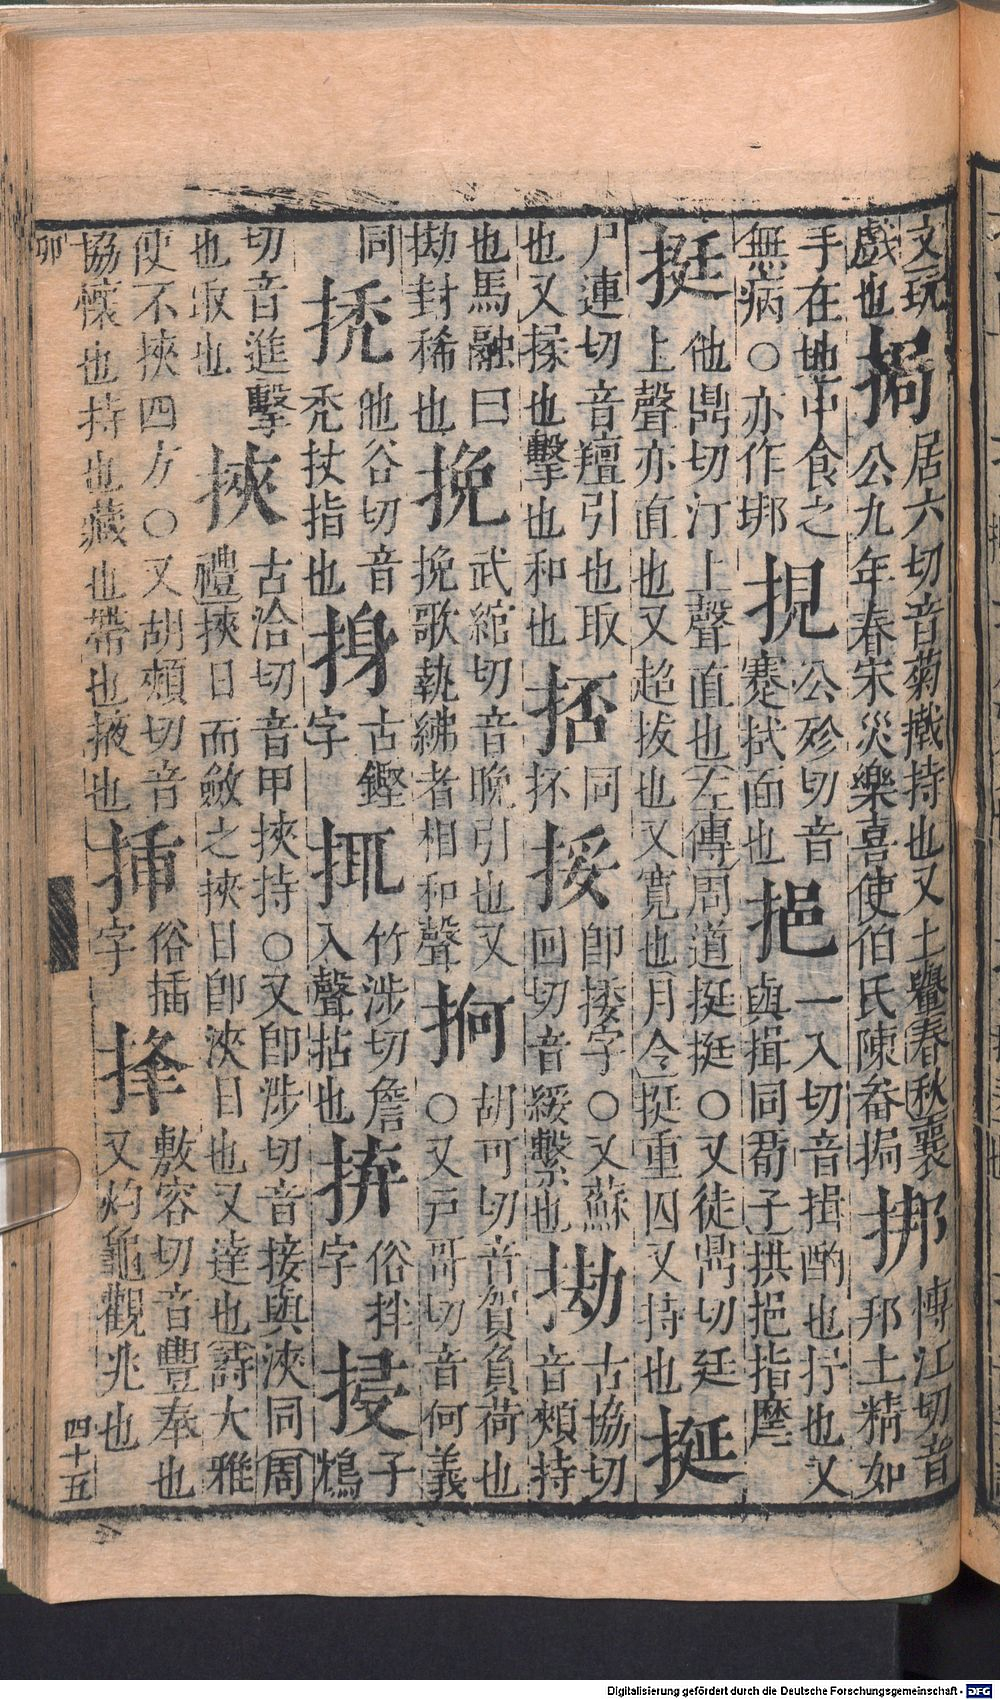 文玩
戲也
挶
居六切音菊撠持也又土轝春秋襄
公九年春宋災樂喜使伯氏陳畚挶
挷
博江切音
邦土精如
手在地中食之
無病○亦作垹
挸
公殄切音
蹇拭面也
挹
一入切音揖酌也抒也又
與揖同荀子拱挹指麾
挺
他鼎切汀上聲直也左傳周道挺挺○又徒鼎切廷
上聲亦直也又超拔也又寬也月令挺重囚又持也
挻
尸連切音羶引也取
也又揉也擊也和也
同
抔
挼
即捼字○又蘇
回切音綏繫也
古協切
音頰持
也馬融曰
封稀也
挽
武綰切音晚引也又
挽歌執紼者相和聲
抲
胡可切音賀負荷也
○又戶哥切音何義
同
他谷切音
禿杖指也
古鏗
字
挕
竹涉切詹
入聲拈也
俗拌
字
子
鴆
切音進擊
也取也
挾
古洽切音甲挾持○又即涉切音接與浹同周
禮挾日而斂之挾日即浹日也又達也詩大雅
使不挾四方○又胡頰切音
協懷也持也藏也帶也掖也
挿
俗插
字
捀
敷容切音豐奉也
又灼龜觀兆也
卯
四十五
Digitalisierung gefördert durch die Deutsche Forschungsgemeinschaft - DFG